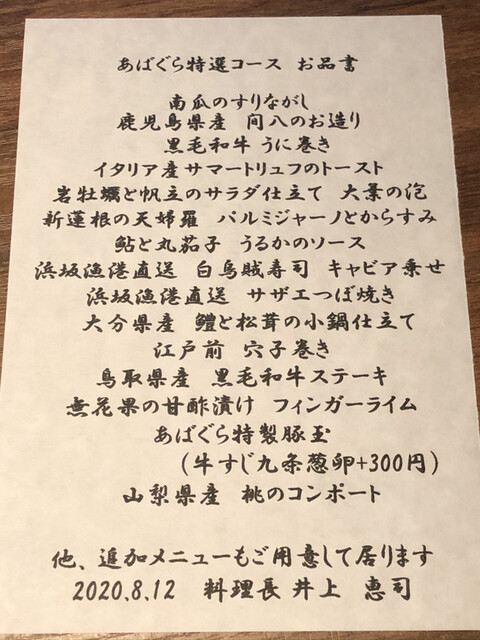 あばぐら特選コース　お品書
南瓜のすりながし
鹿児島県産　間八のお造り
黒毛和牛 うに巻き
イタリア産サマートリュフのトースト
岩牡蠣と帆立のサラダ仕立て　大葉の泡
新蓮根の天婦羅　パルミジャーノとからすみ
鮎と丸茄子　うるかのソース
浜坂漁港直送　白烏賊寿司　キャビア乗せ
浜坂漁港直送　サザエつぼ焼き
大分県産　鱧と松茸の小鍋仕立て
江戸前　穴子巻き
鳥取県産　黒毛和牛ステーキ
無花果の甘酢漬け　フィンガーライム
あばぐら特製豚玉
（牛すじ九条葱卵+300円）
山梨県産　桃のコンポート
他、追加メニューもご用意して居ります
2020.8.12　料理長 井上　恵司